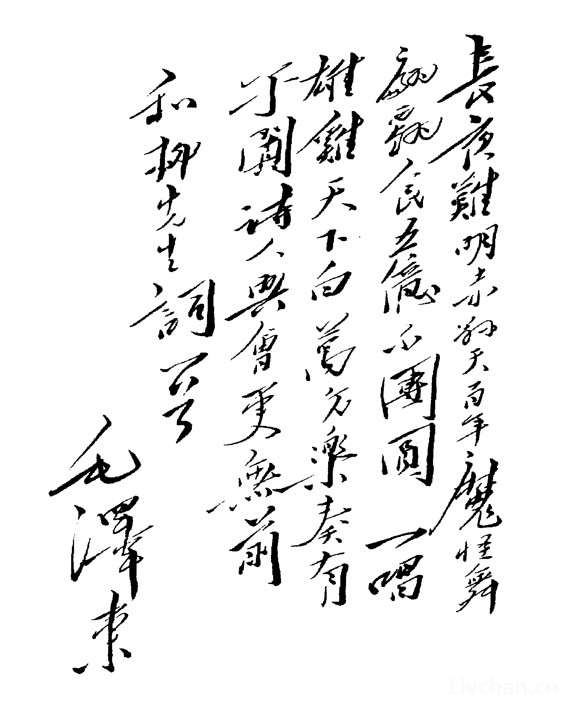 長夜難明赤縣天百年魔怪舞
翩躚人民五億不團圓 一唱
雄雞天下白萬方樂奏有
于闐詩人興會更無前
和柳先生詞一首
毛澤東
Livchan.cn